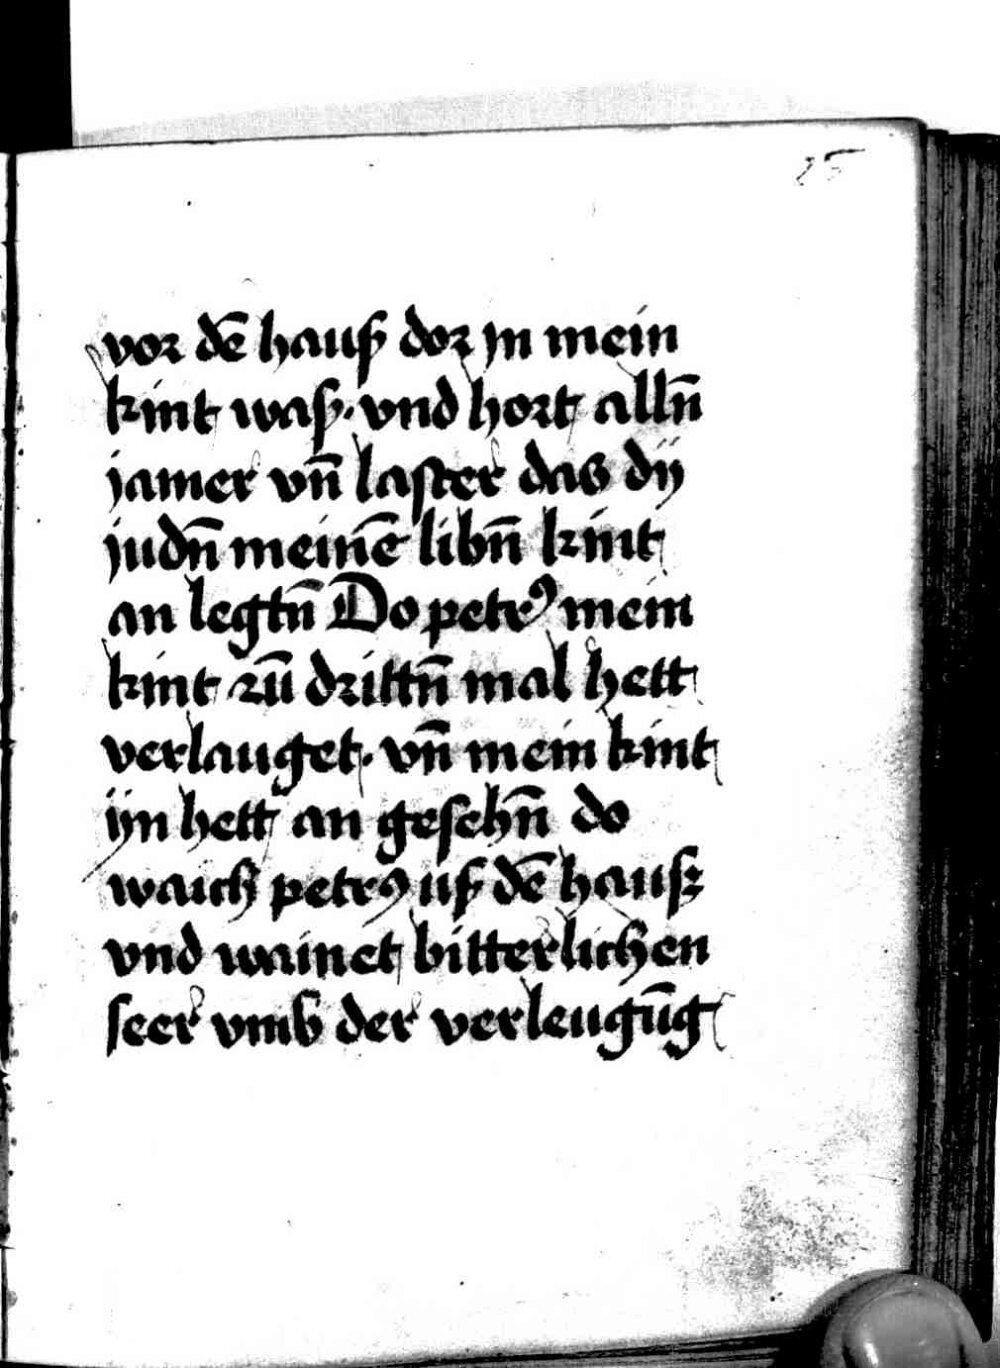 25
vor dē hauß dor jn mein
kint waß · vnd hort alln̄
jamer vn̄ laster das dij
judn̄ meinē libn̄ kint
an legtn̄ Do petrꝰ mein
kint zū drittn̄ mal hett
verlauget · vn̄ mein kint
ijn hett an gesehn̄ do
waich petrꝰ uß dē hausz
vnd wainet bitterlichen
seer vmb der verleugūg